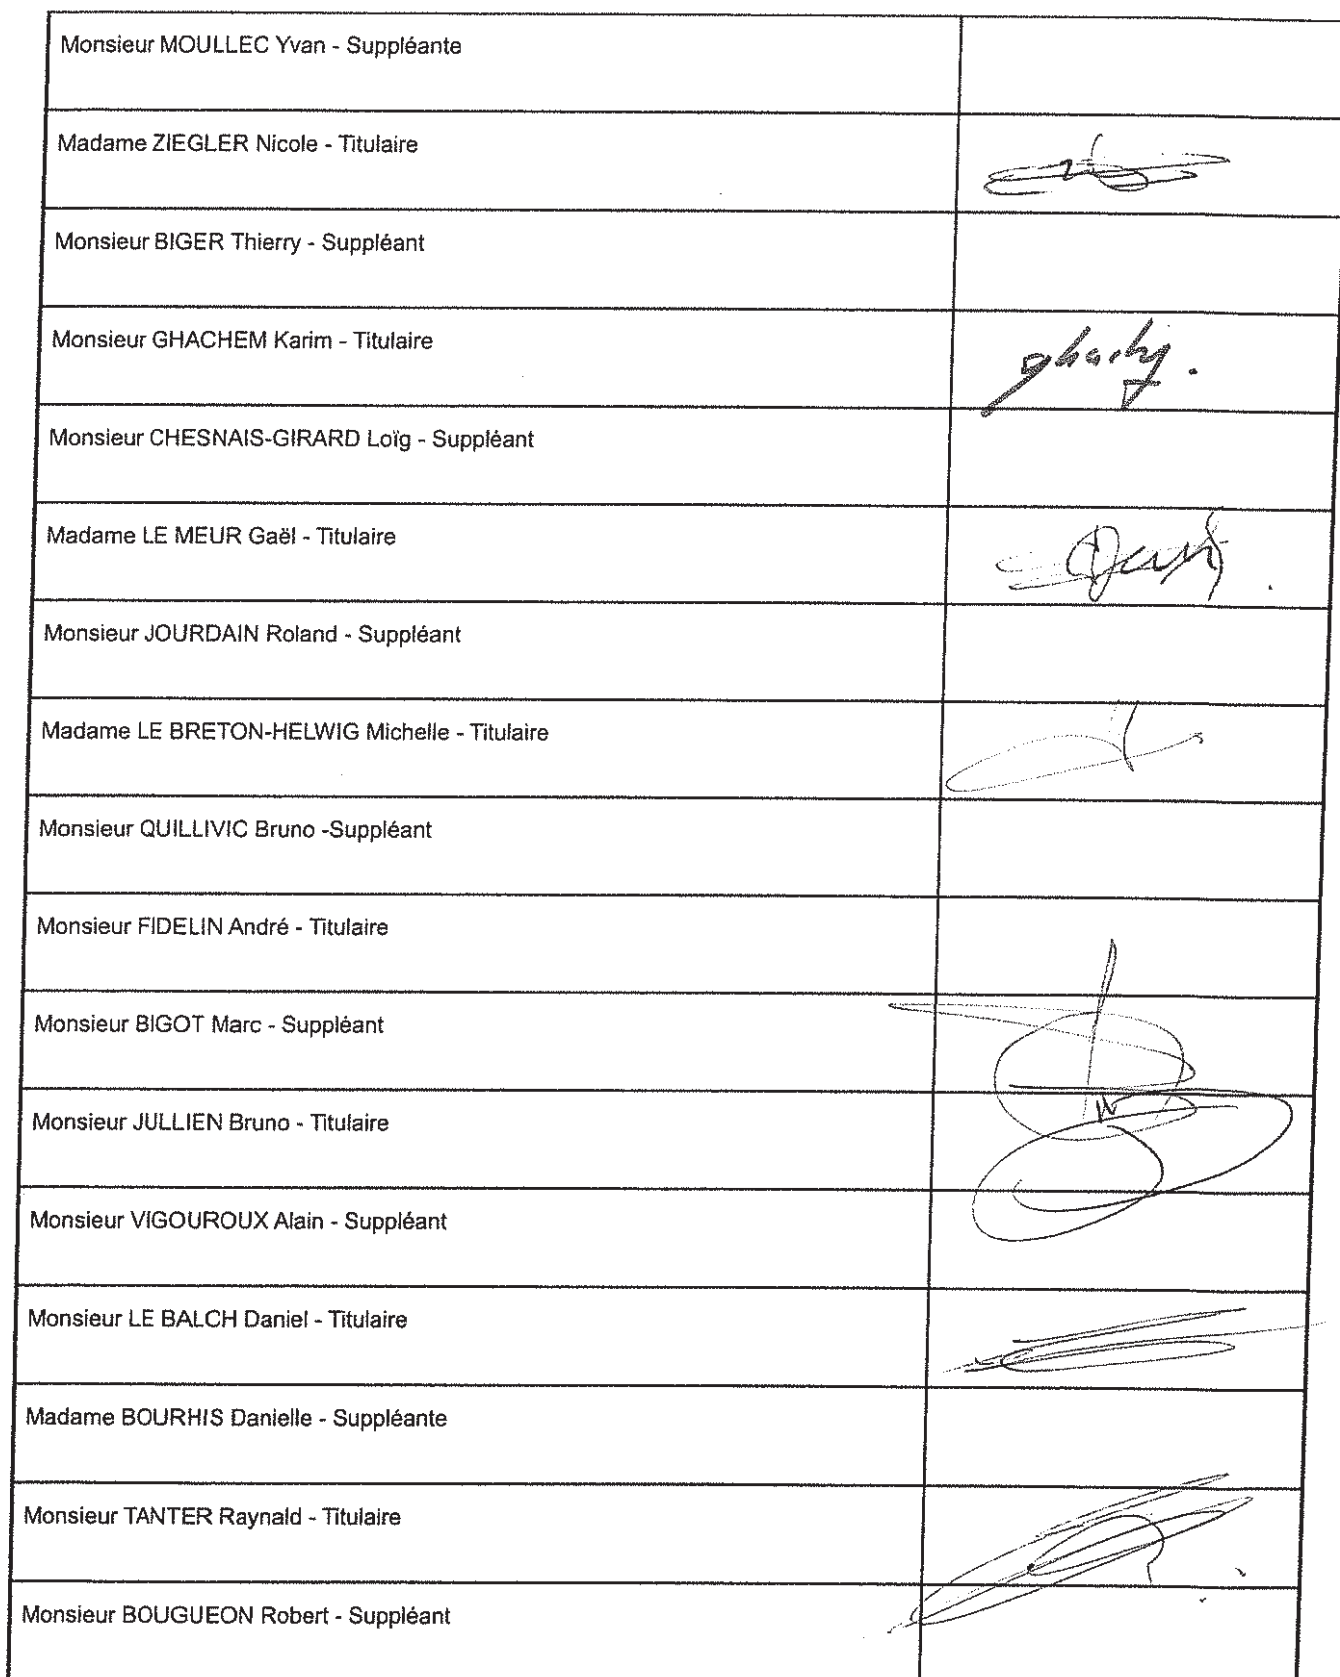 Monsieur MOULLEC Yvan - Suppléante
Madame ZIEGLER Nicole - Titulaire
Monsieur BIGER Thierry - Suppléant
Monsieur GHACHEM Karim - Titulaire
Monsieur CHESNAIS-GIRARD Loïg - Suppléant
Madame LE MEUR Gaël - Titulaire
Monsieur JOURDAIN Roland - Suppléant
Madame LE BRETON-HELWIG Michelle - Titulaire
Monsieur QUILLIVIC Bruno -Suppléant
Monsieur FIDELIN André - Titulaire
Monsieur BIGOT Marc - Suppléant
Monsieur JULLIEN Bruno - Titulaire
Monsieur VIGOUROUX Alain - Suppléant
Monsieur LE BALCH Daniel - Titulaire
Madame BOURHIS Danielle - Suppléante
Monsieur TANTER Raynald - Titulaire
Monsieur BOUGUEON Robert - Suppléant